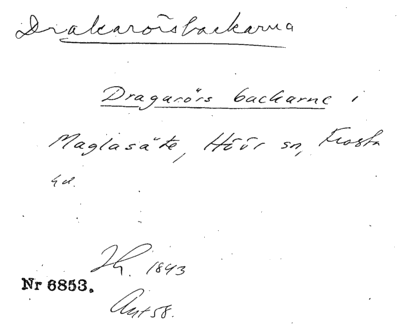 Drakarörsbackarna
Dragarörs backarne i
Maglasäte, Höör sn, Frosta
hd.
Th. 1843
Nr 6853.
Ant 58.